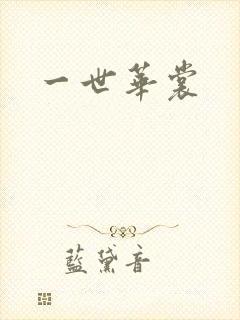 一世華裳
藍黛音